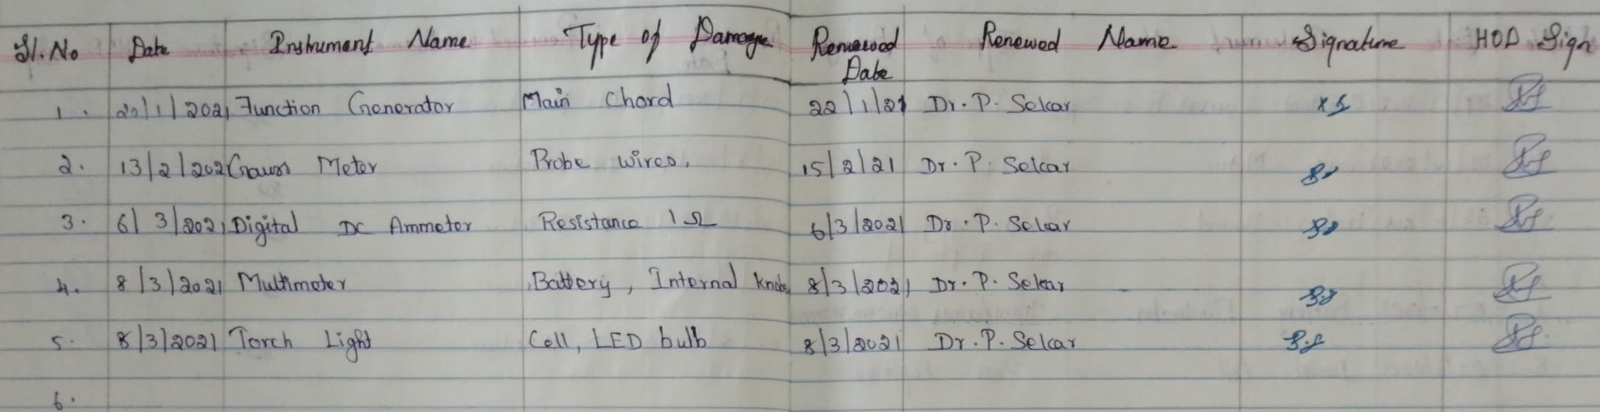 Sl. No Date Instrument Name Type of Damage Renewed Date Renewed Name Signature HOD Sign
1. 22/1/2021 Function Generator Main Chord 22/1/21 Dr. P. Sekar
2. 13/2/202 Gauss Meter Probe wires, 15/2/21 Dr. P. Sekar
3. 6/3/2021 Digital DC Ammeter Resistance 1Ω 6/3/2021 Dr. P. Sekar
4. 8/3/2021 Multimeter Battery, Internal knobs 8/3/2021 Dr. P. Sekar
5. 8/3/2021 Torch Light Cell, LED bulb 8/3/2021 Dr. P. Sekar
6.